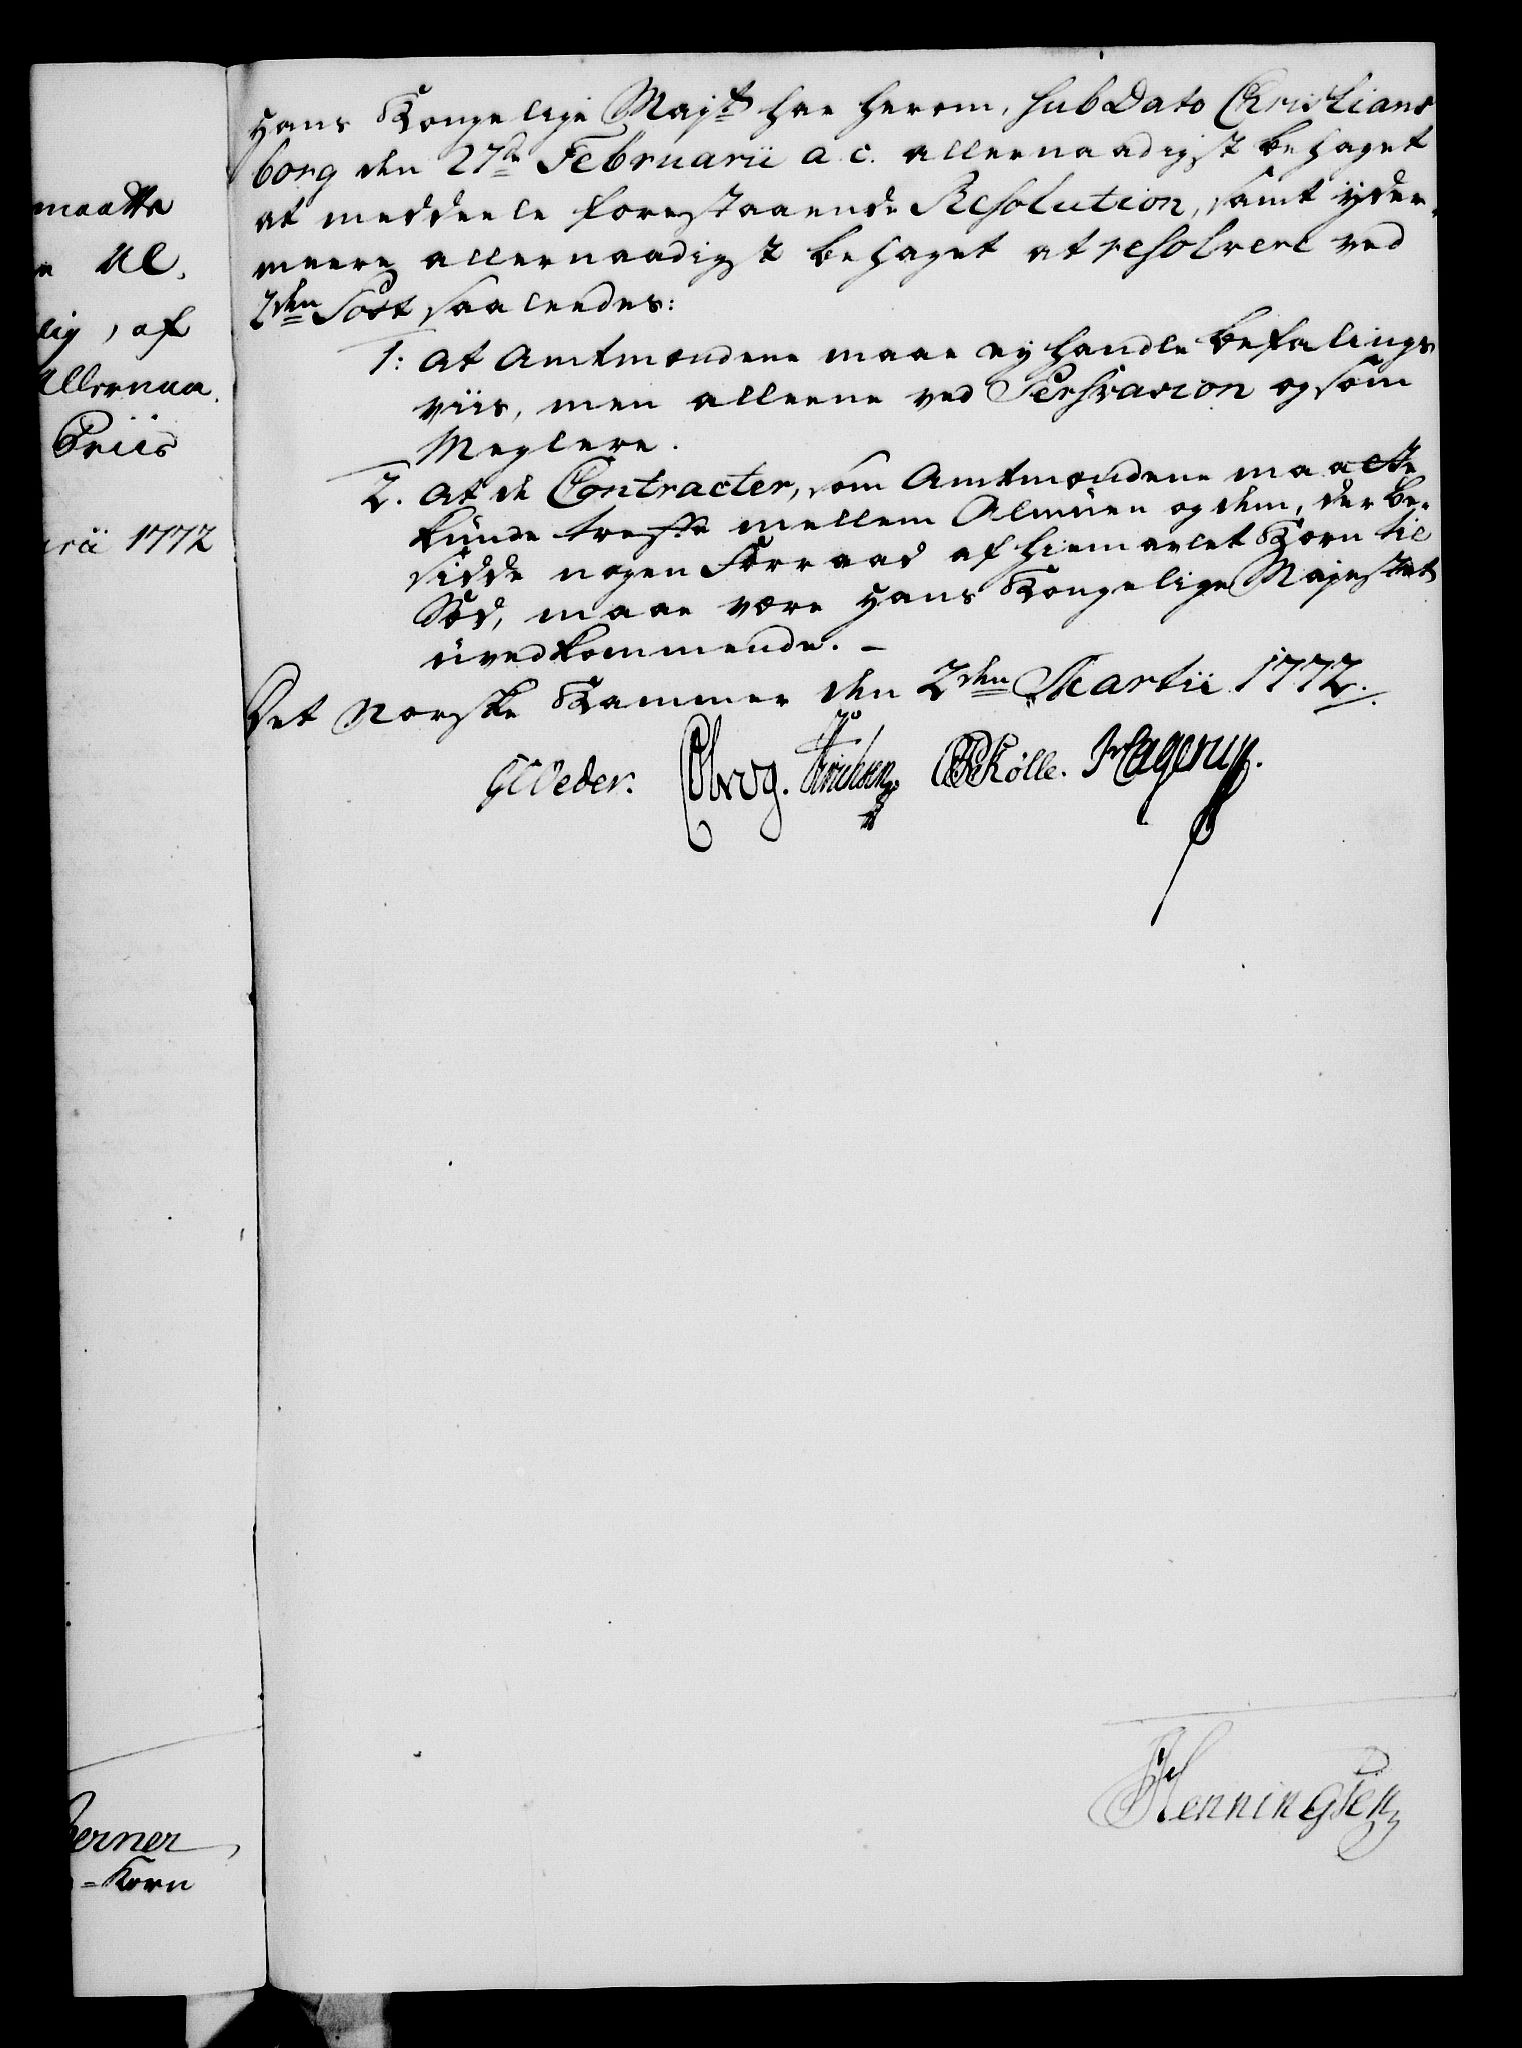 maatte
Al,
lig, af
Allernaa,
Priis
1772
Berner
=Korn
Hans Kongelige Mayt har herom, sub Dato Christians
borg den 27de Februarii a. c. allernaadigst behaget
at meddeele forestaaende Resolution, samt yder-
meere allernaadigst behaget at resolvere ved
2den Post saaledes:
1: At Amtmændene maae ey handle befalings
viis, men alleene ved Persvasion og som
Meglere.
2. At de Contracter, som Amtmændene maatte
kunde treffe mellem Almuen og dem, der be-
sidde nogen Forraad af hiemavlet Korn til
Sæd, maae være Hans Kongelige Majestæt
uvedkommende. -
Det Norske Kammer den 2den Martii 1772.
Erichsen Kølle. Hagerup.
Henningsen